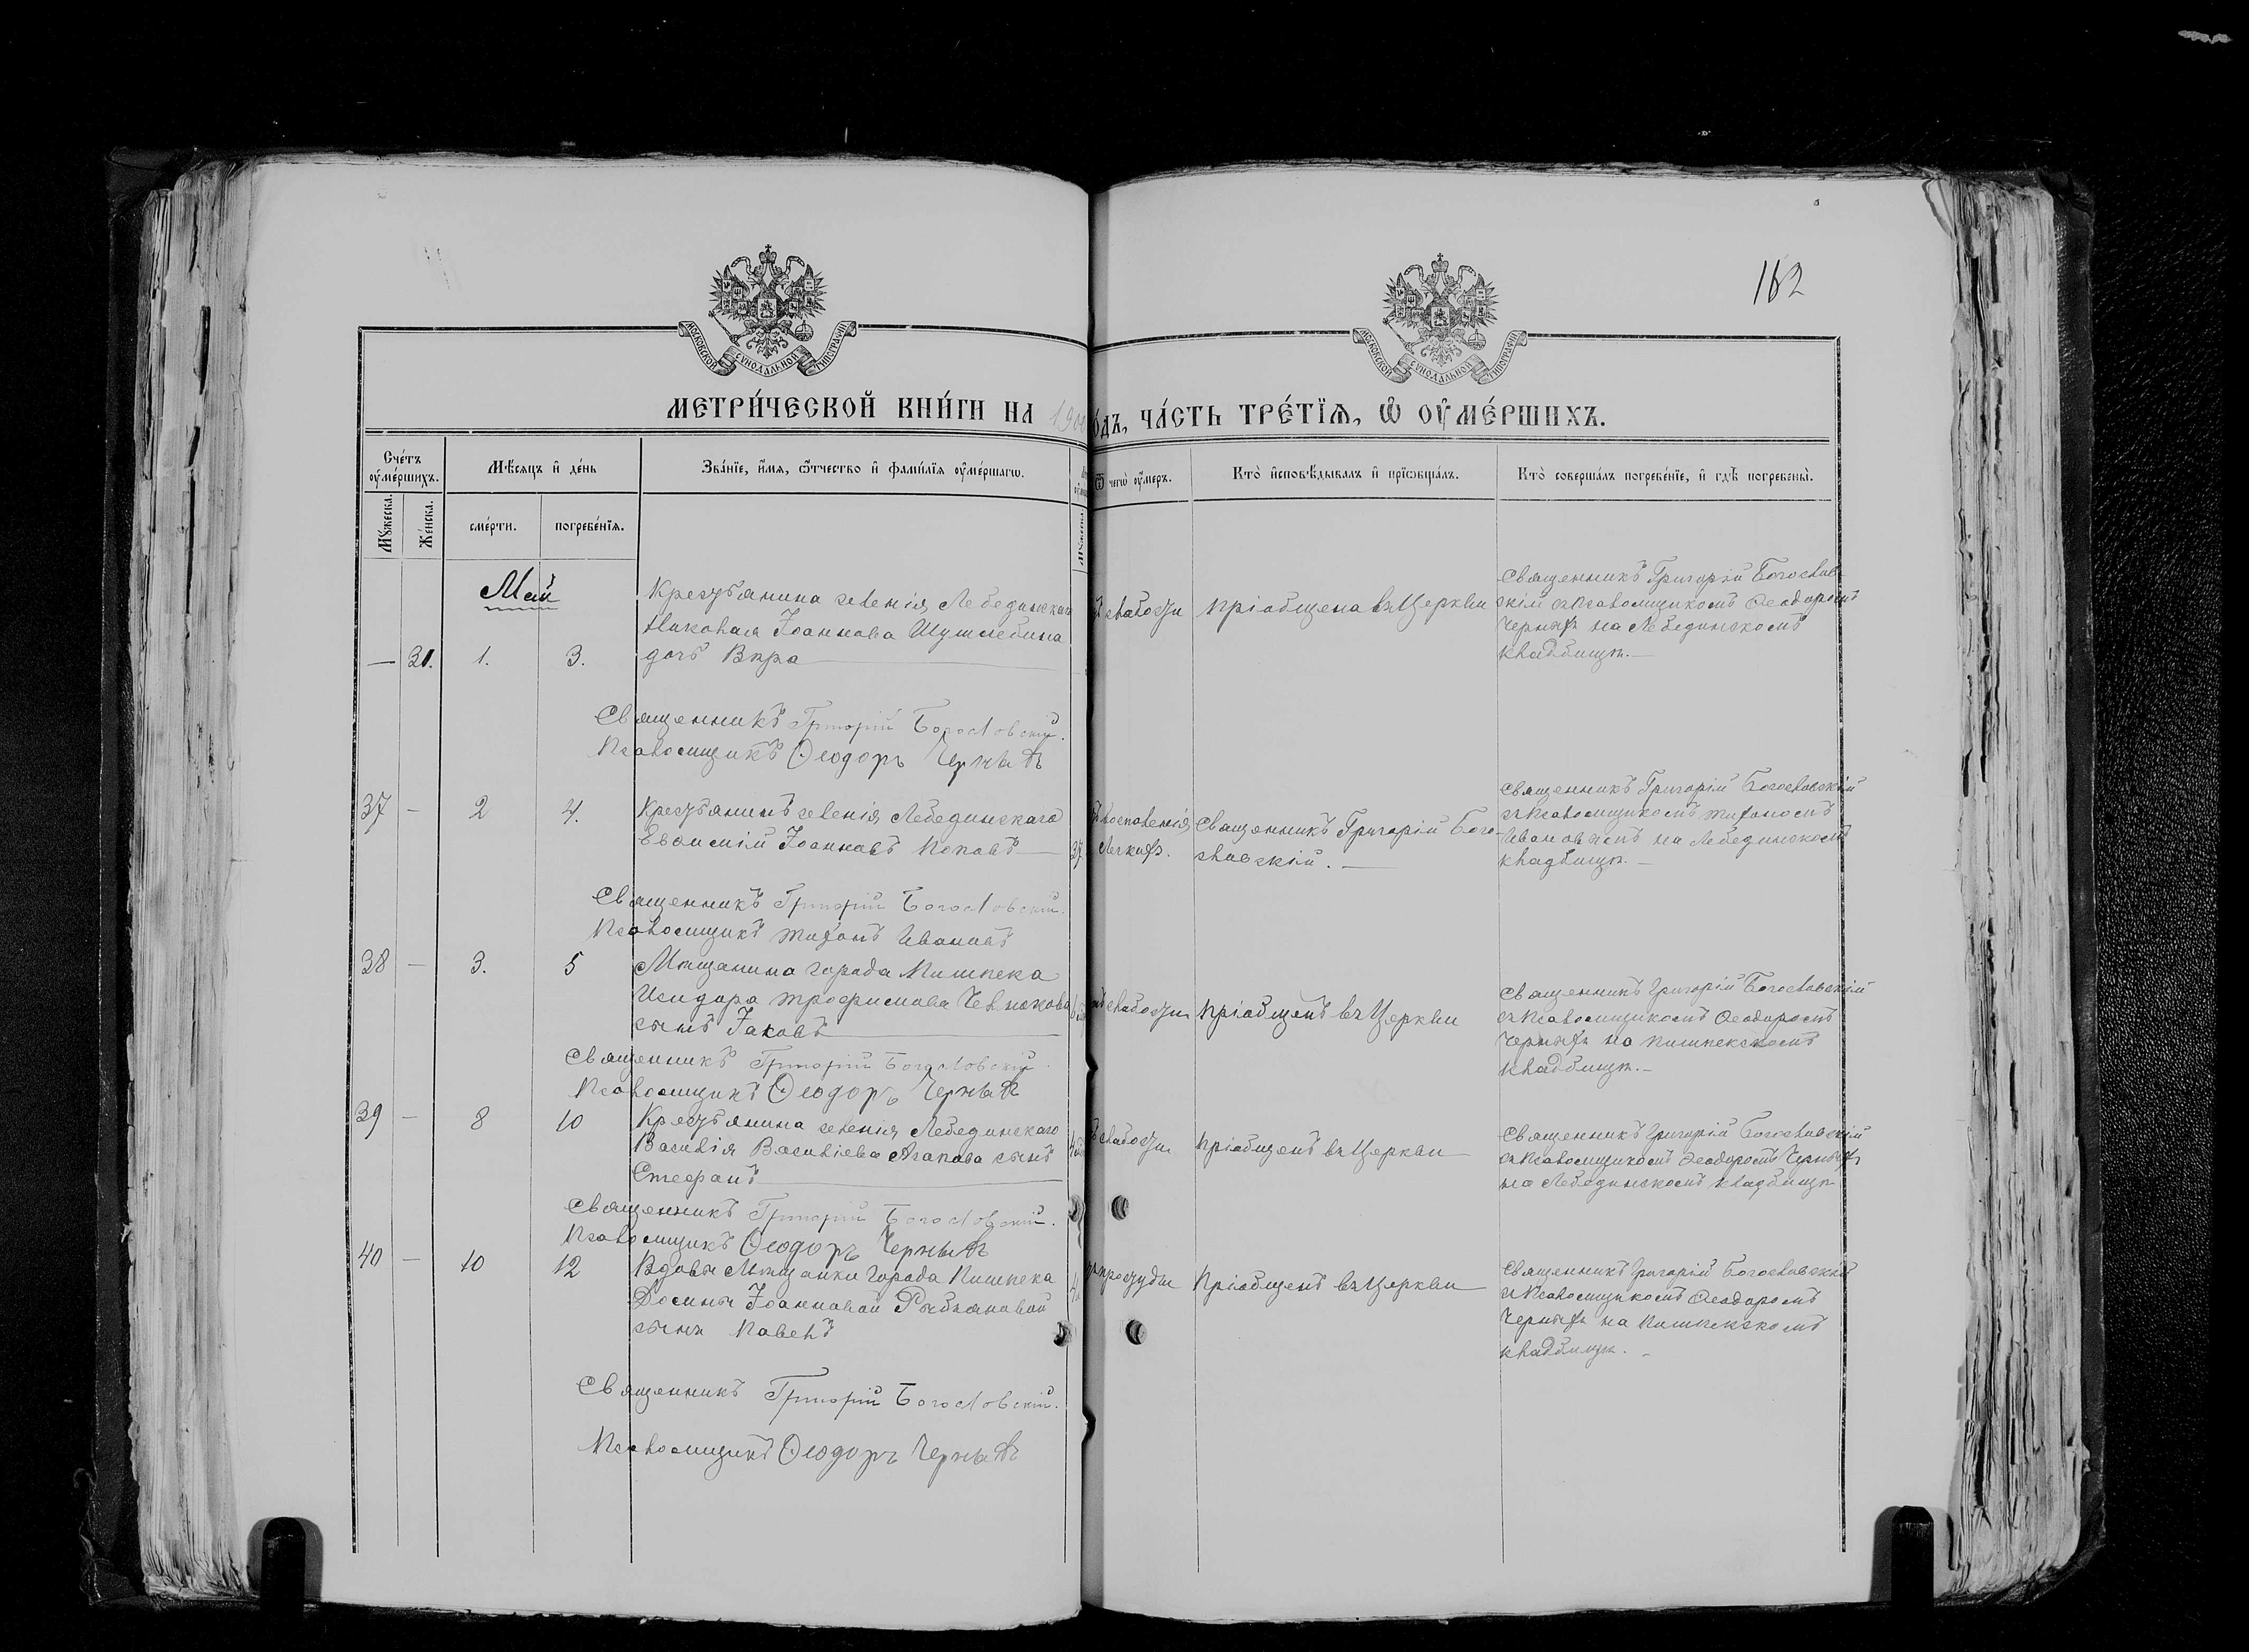 162
МОСКОВСКОЙ СѴНОДАЛЬНОЙ ТИПОГРАФІИ
МОСКОВСКОЙ СѴНОДАЛЬНОЙ ТИПОГРАФІИ
МЕТРИ́ЧЕСКОЙ КНИ́ГИ НА 190
О́ДЪ, ЧА́СТЬ ТРЕ́ТІѦ, Ѡ ОУ҆МЕ́РШИХЪ.
Сче́тъ оу҆ме́ршихъ.
Мꙋ́жеска.
Же́нска.
Мѣ́сяцъ и҆ де́нь
сме́рти.
погребе́нїѧ.
Зва́нїе, и҆́мѧ, ѻ҆́тчество и҆ фами́лїѧ оу҆ме́ршагѡ.
Мꙋ́жеска.
Ѿ чегѡ̀ оу҆́меръ.
Кто̀ и҆сповѣ́дывалъ и҆ прїѡбща́лъ.
Кто̀ соверша́лъ погребе́нїе, и҆ гдѣ̀ погребены̀.
Май
— 31. 1. 3.
Крестьянина селенія Лебединскаго
Николая Іоаннова Шумлебина
дочь Вѣра
слабости
пріобщена въ Церкви
Священникъ Григорій Богослов-
скій съ Псаломщикомъ Ѳеодоромъ
Черныхъ на Лебединскомъ
кладбищѣ.—
Священникъ Григорій Богословскій.
Псаломщикъ Ѳеодоръ Черныхъ
37 — 2 4.
Крестьянинъ селенія Лебединскаго
Евѳимій Іоанновъ Поповъ
37
воспаленія
легкихъ.
Священникъ Григорій Бого-
словскій.—
Священникъ Григорій Богословскій
съ Псаломщикомъ Тихономъ
Ивановымъ на Лебединскомъ
кладбищѣ.—
Священникъ Григорій Богословскій.
Псаломщикъ Тихонъ Ивановъ
38 — 3. 5
Мѣщанина города Пишпека
Исидора Трофимова
сынъ Іаковъ
слабости
пріобщенъ въ Церкви
Священникъ Григорій Богословскій
съ Псаломщикомъ Ѳеодоромъ
Черныхъ на Пишпекскомъ
кладбищѣ.—
Священникъ Григорій Богословскій.
Псаломщикъ Ѳеодоръ Черныхъ
39 — 8 10
Крестьянина селенія Лебединскаго
Василія Василіева Агапова сынъ
Стефанъ
слабости
пріобщенъ въ Церкви
Священникъ Григорій Богословскій
съ Псаломщикомъ Ѳеодоромъ Черныхъ
на Лебединскомъ кладбищѣ
Священникъ Григорій Богословскій.
Псаломщикъ Ѳеодоръ Черныхъ
40 — 10 12
Вдовы Мѣщанки города Пишпека
Іоанновой
сынъ Павелъ
простуды
Пріобщенъ въ Церкви
Священникъ Григорій Богословскій
съ Псаломщикомъ Ѳеодоромъ
Черныхъ на Пишпекскомъ
кладбищѣ.—
Священникъ Григорій Богословскій.
Псаломщикъ Ѳеодоръ Черныхъ